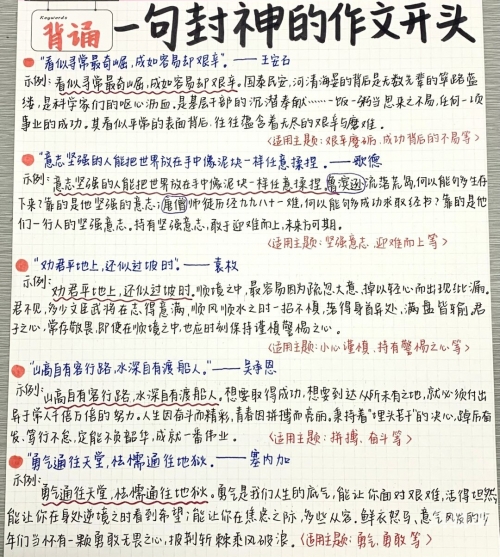 Keywords
背诵
一句封神的作文开头
"看似寻常最奇崛,成如容易却艰辛。"——王安石
示例:看似寻常最奇崛,成如容易却艰辛。国泰民安,河清海晏的背后是无数先辈的筚路蓝
缕,是科学家们的呕心沥血,是基层干部的沉潜奉献……一饭一粥当思来之不易,任何一项
事业的成功。其看似平常的表面背后,往往蕴含着无尽的艰辛与磨难。
〈适用主题:艰辛磨砺,成功背后的不易等〉
"意志坚强的人能把世界放在手中像泥块一样任意揉捏。——歌德
示例:意志坚强的人能把世界放在手中像泥块一样任意揉捏。鲁滨逊流落荒岛,何以能够多生存
下来?靠的是他坚强的意志;唐僧师徒历经九九八十一难,何以能够多成功求取经书?靠的是他
们一行人的坚强意志。持有坚强意志,敢于迎难而上,未来方可期。
〈适用主题:坚强意志、迎难而上等〉
"劝君平地上,还似过坡时"。——袁枚
示例:劝君平地上,还似过坡时。顺境之中,最容易因为疏忽大意,掉以轻心而出现纰漏。
君不见,多少文臣武将在志得意满,顺风顺水之时一招不慎,落得身首异处,满盘皆输。君
子之心,常存敬畏,即使在顺境之中,也应时刻保持谨慎警惕之心。
〈适用主题:小心谨慎、持有警惕之心等〉
"山高自有客行路,水深自有渡船人。"——吴承恩
示例:山高自有客行路,水深自有渡船人。想要取得成功,想要到达从所未有之地,就必须付出
异于常人千倍万倍的努力。人生因奋斗而精彩,青春因拼搏而亮丽。秉持着"埋头苦干"的决心,踔厉奋
发、笃行不怠,定能不负韶华,成就一番伟业。〈适用主题:拼搏、奋斗等〉
"勇气通往天堂,怯懦通往地狱。"——塞内加
示例:勇气通往天堂,怯懦通往地狱。勇气是我们人生的底气,能让你面对艰难,活得坦然;
能让你在身处逆境之时看到希望;能让你在焦虑之际,多些从容。鲜衣怒马、意气风发的少
年们当怀有一颗勇敢无畏之心,披荆斩棘乘风破浪。〈适用主题:勇气,勇敢等〉